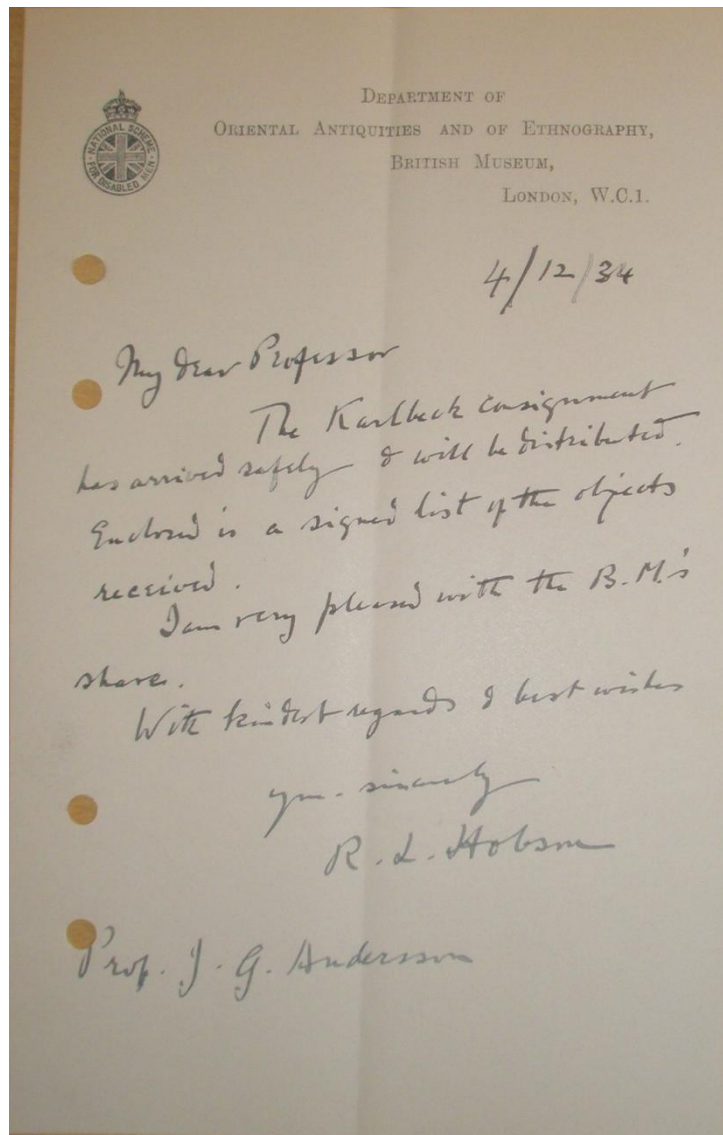 DEPARTMENT OF
ORIENTAL ANTIQUITIES AND OF ETHNOGRAPHY,
BRITISH MUSEUM,
LONDON, W.C.1.
NATIONAL SCHEME
FOR DISABLED MEN
4/12/34
My dear Professor
The Karlbeck consignment
has arrived safely & will be distributed.
Enclosed is a signed list of the objects
received.
I am very pleased with the B.M.'s
share.
With kindest regards & best wishes
yrs. sincerely
R. L. Hobson
Prof. J. G. Andersson